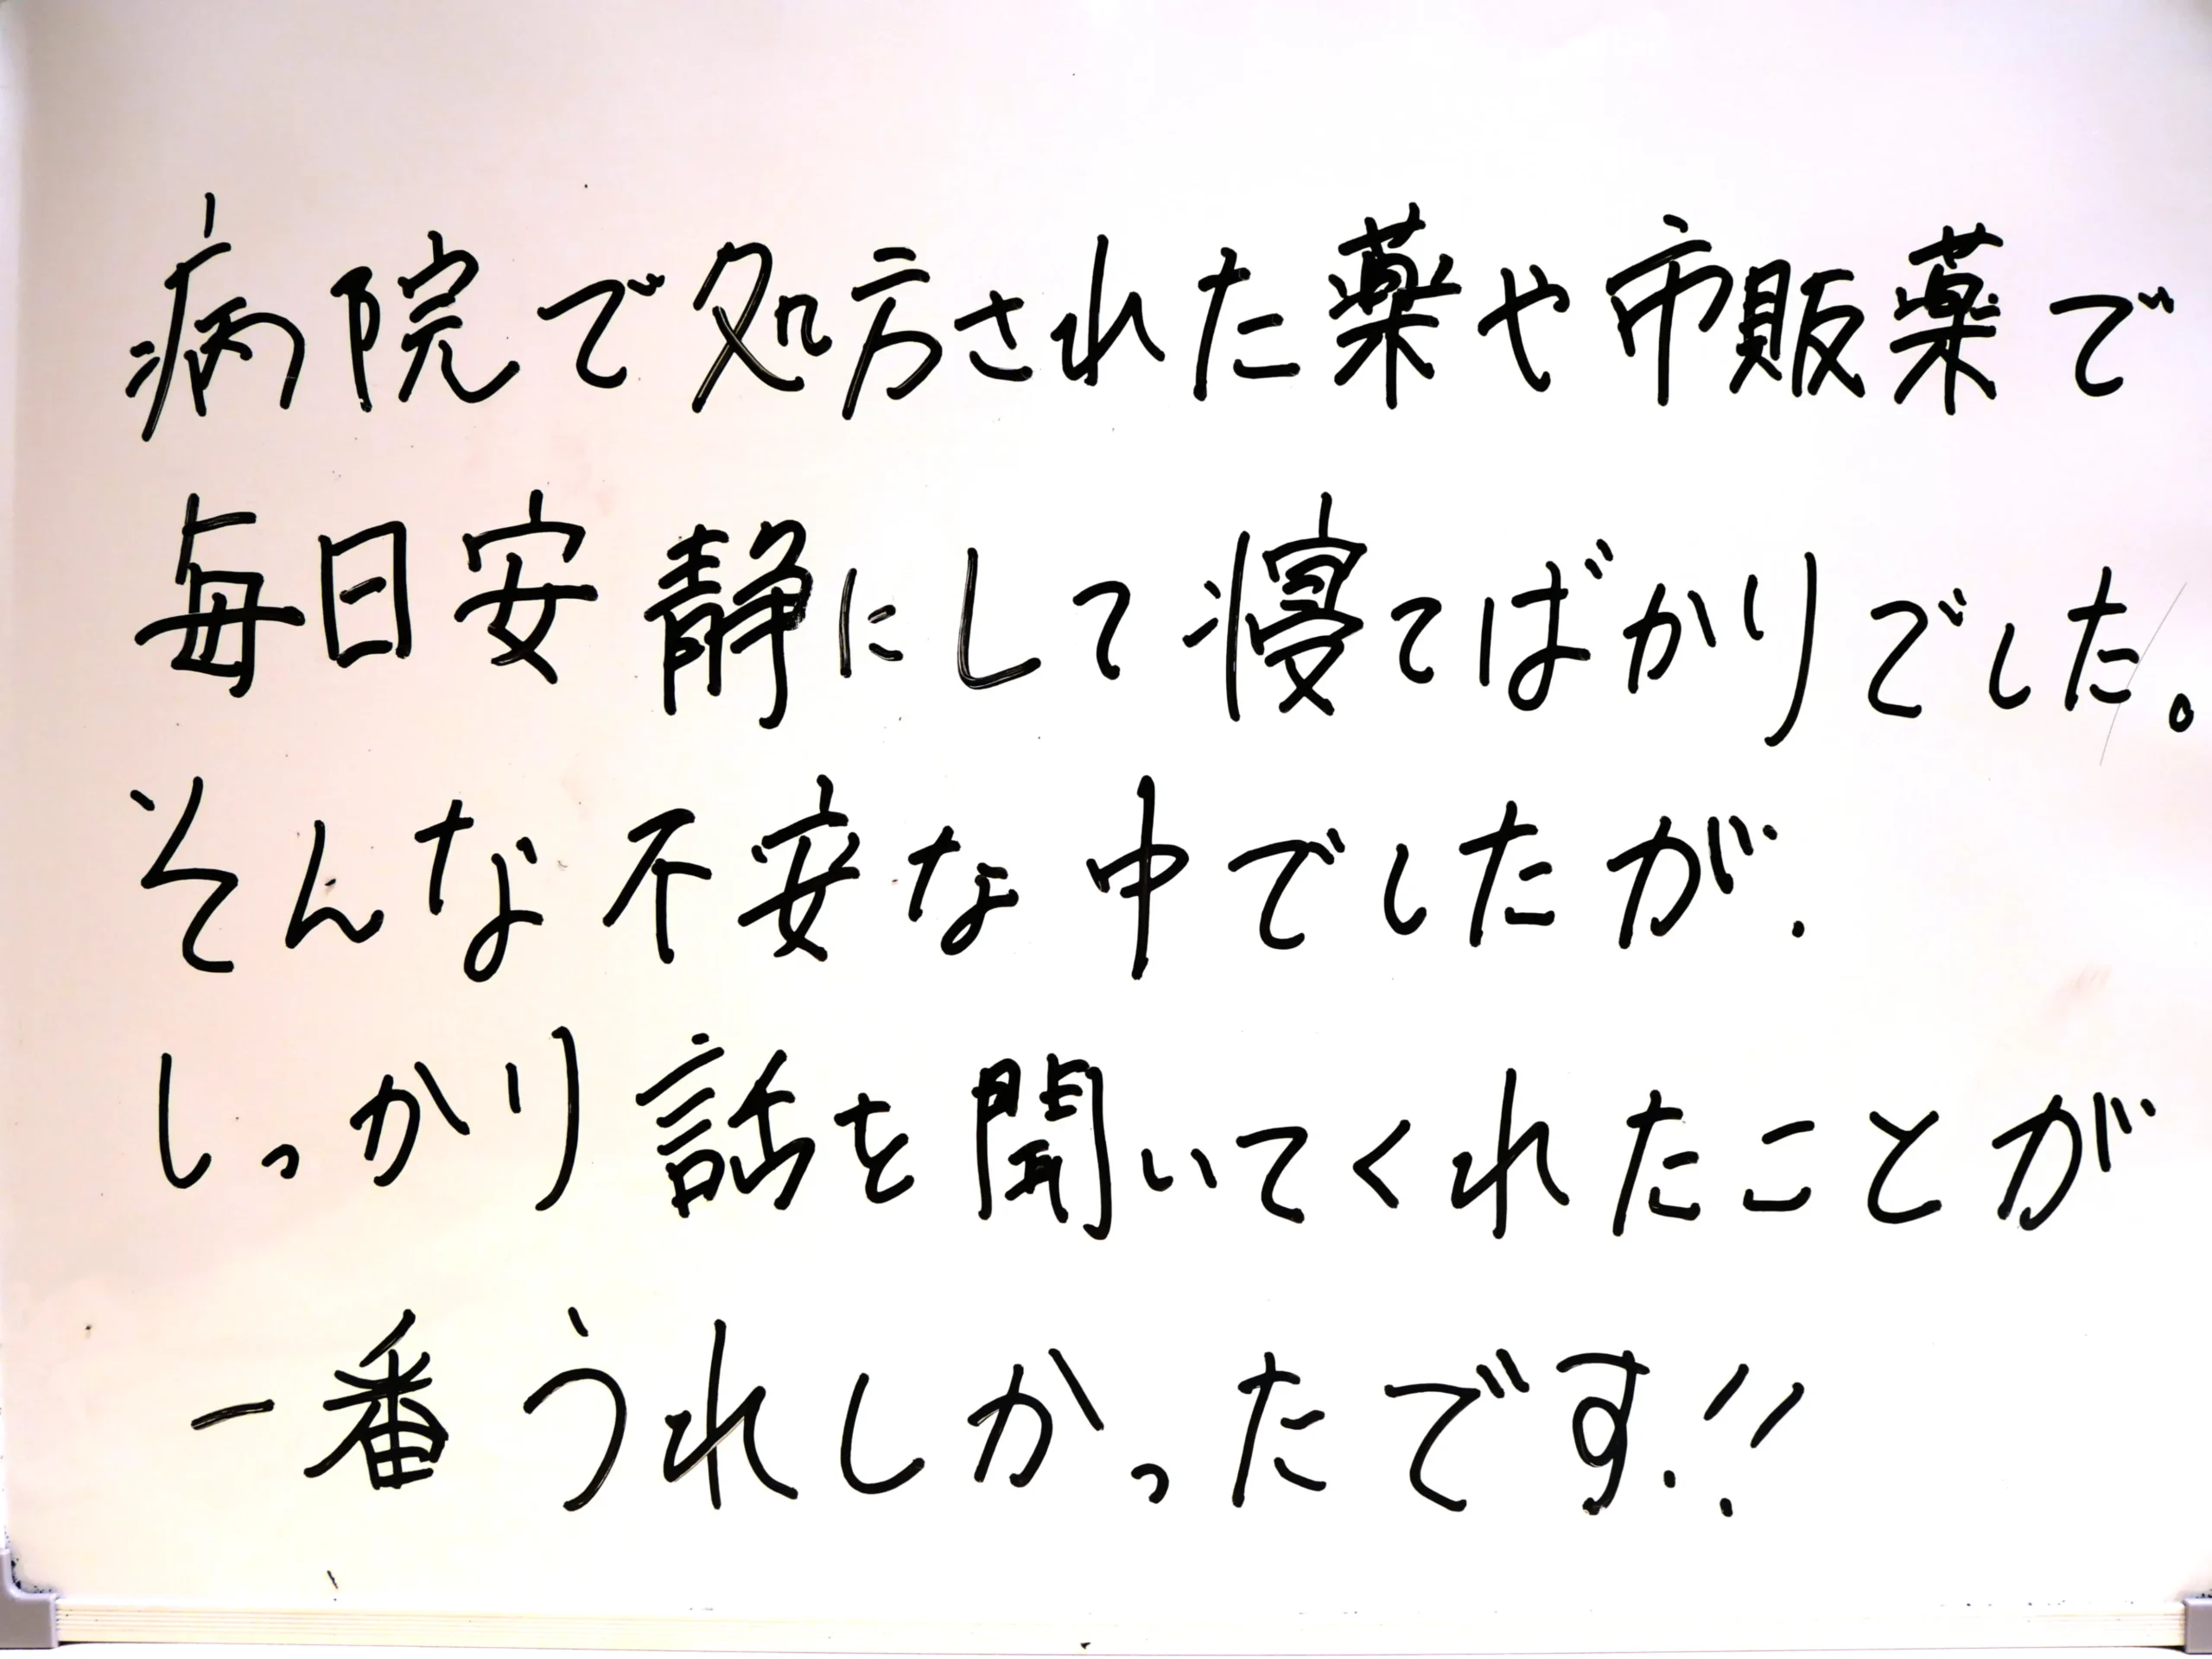 病院で処方された薬や市販薬で
毎日安静にして寝てばかりでした。
そんな不安な中でしたが、
しっかり話を聞いてくれたことが
一番うれしかったです!!